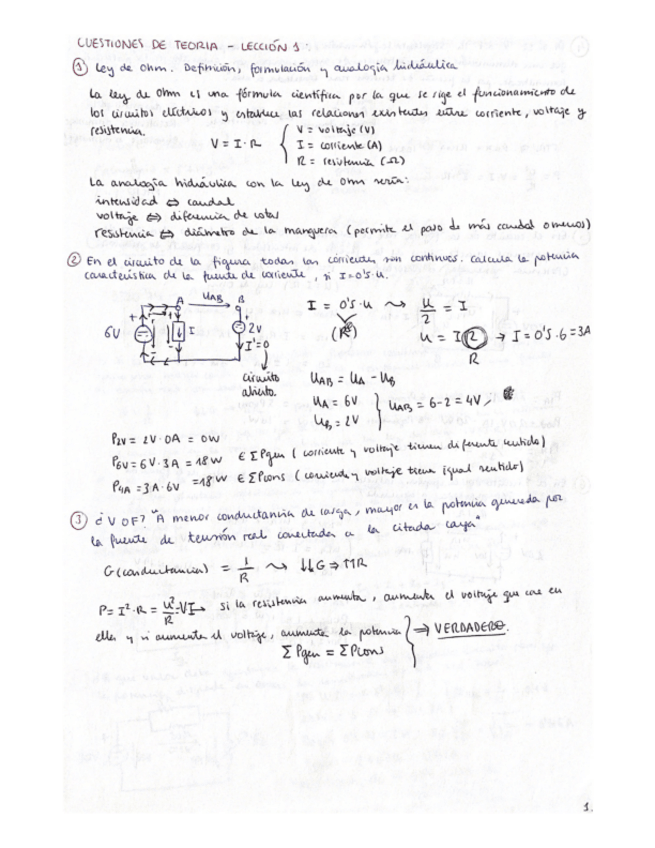 CUESTIONES DE TEORIA - LECCIÓN 1:
① Ley de Ohm. Definición, formulación y analogía hidráulica
La ley de Ohm es una fórmula científica por la que se rige el funcionamiento de
los circuitos eléctricos y establece las relaciones existentes entre corriente, voltaje y
resistencia.
V = I · R
V = voltaje (V)
I = corriente (A)
R = resistencia (Ω)
La analogía hidráulica con la ley de Ohm sería:
intensidad ⇔ caudal
voltaje ⇔ diferencia de cotas
resistencia ⇔ diámetro de la manguera (permite el paso de más caudal o menos)
② En el circuito de la figura todas las corrientes son continuas. Calcula la potencia
característica de la fuente de corriente, si I=0'5·u.
A UAB B
6V I 2V
I'=0
circuito
abierto.
I = 0'5·u ⇝ u/2 = I
(R)
u = I·2 → I = 0'5·6 = 3A
R
UAB = UA - UB
UA = 6V
UB = 2V
UAB = 6-2 = 4V
P2V = 2V·0A = 0W
P6V = 6V·3A = 18W ∈ ΣPgen (corriente y voltaje tienen diferente sentido)
P4A = 3A·6V = 18W ∈ ΣPcons (corriente y voltaje tiene igual sentido)
③ ¿V o F? "A menor conductancia de carga, mayor es la potencia generada por
la fuente de tensión real conectada a la citada carga"
G (conductancia) = 1/R ⇝ ↓↓G ⇒ ↑↑R
P = I²·R = u²/R = VI → si la resistencia aumenta, aumenta el voltaje que cae en
ella y si aumenta el voltaje, aumenta la potencia ⇒ VERDADERO.
ΣPgen = ΣPcons
1.